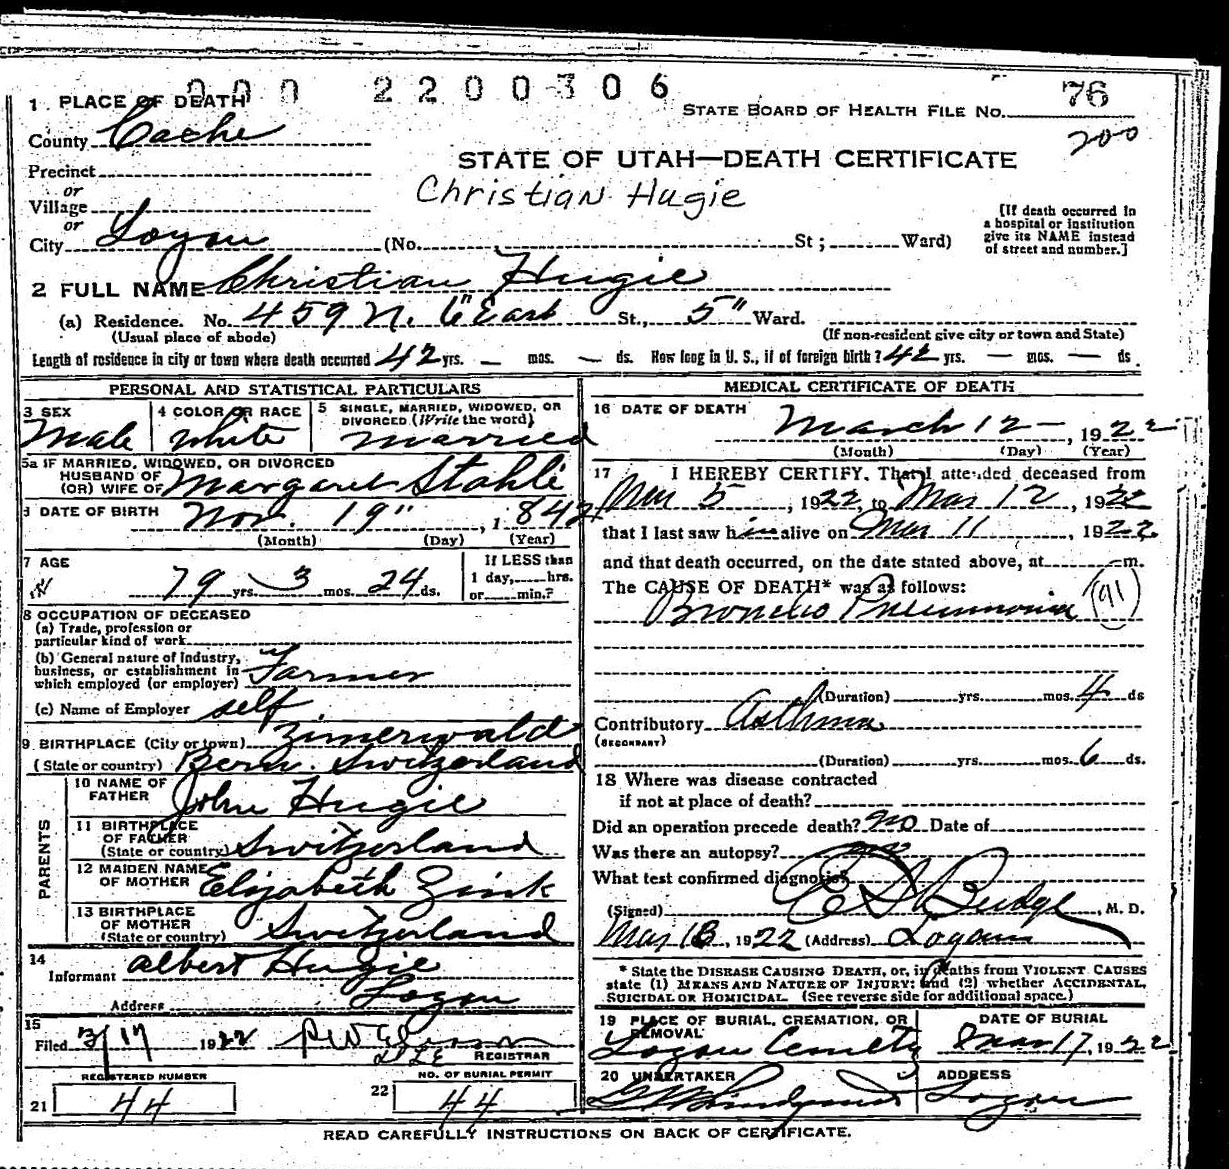 000 2200306
1 PLACE OF DEATH
STATE BOARD OF HEALTH FILE No. 76
200
County Cache
STATE OF UTAH—DEATH CERTIFICATE
Precinct
or
Christian Hugie
Village
or
City Logan (No. St; Ward)
[If death occurred in
a hospital or institution
give its NAME instead
of street and number.]
2 FULL NAME Christian Hugie
(a) Residence. No. 459 N. 6" East St., 5" Ward.
(Usual place of abode) (If non-resident give city or town and State)
Length of residence in city or town where death occurred 42 yrs. — mos. — ds. How long in U. S., if of foreign birth? 42 yrs. — mos. — ds
PERSONAL AND STATISTICAL PARTICULARS
3 SEX
Male
4 COLOR OR RACE
White
5 SINGLE, MARRIED, WIDOWED, OR
DIVORCED (Write the word)
Married
5a IF MARRIED, WIDOWED, OR DIVORCED
HUSBAND OF
(OR) WIFE OF Margaret Stahli
6 DATE OF BIRTH Nov. 19", 1842
(Month) (Day) (Year)
7 AGE
79 yrs. 3 mos. 24 ds.
If LESS than
1 day, hrs.
or min.?
8 OCCUPATION OF DECEASED
(a) Trade, profession or
particular kind of work
(b) General nature of industry,
business, or establishment in
which employed (or employer) Farmer
(c) Name of Employer self
9 BIRTHPLACE (City or town) Zimerwald
(State or country) Bern. Switzerland
PARENTS
10 NAME OF
FATHER John Hugie
11 BIRTHPLACE
OF FATHER
(State or country) Switzerland
12 MAIDEN NAME
OF MOTHER Elizabeth Zink
13 BIRTHPLACE
OF MOTHER
(State or country) Switzerland
14
Informant Albert Hugie
Address Logan
15
Filed 3/17 1922
REGISTRAR
REGISTERED NUMBER
21 44
NO. OF BURIAL PERMIT
22 44
MEDICAL CERTIFICATE OF DEATH
16 DATE OF DEATH
March 12 —, 1922
(Month) (Day) (Year)
17 I HEREBY CERTIFY, That I attended deceased from
Mar 5, 1922, to Mar 12, 1922
that I last saw him alive on Mar 11, 1922
and that death occurred, on the date stated above, at m.
The CAUSE OF DEATH* was as follows:
Broncho Pneumonia (91)
(Duration) yrs. mos. 4 ds
Contributory Asthma
(SECONDARY)
(Duration) yrs. mos. 6 ds.
18 Where was disease contracted
if not at place of death?
Did an operation precede death? no Date of
Was there an autopsy? no
What test confirmed diagnosis?
(Signed) Budge, M. D.
Mar 16, 1922 (Address) Logan
* State the DISEASE CAUSING DEATH, or, in deaths from VIOLENT CAUSES
state (1) MEANS AND NATURE OF INJURY; and (2) whether ACCIDENTAL,
SUICIDAL OR HOMICIDAL. (See reverse side for additional space.)
19 PLACE OF BURIAL, CREMATION, OR
REMOVAL
Logan Cemetty
DATE OF BURIAL
Mar 17, 1922
20 UNDERTAKER
ADDRESS
Logan
READ CAREFULLY INSTRUCTIONS ON BACK OF CERTIFICATE.